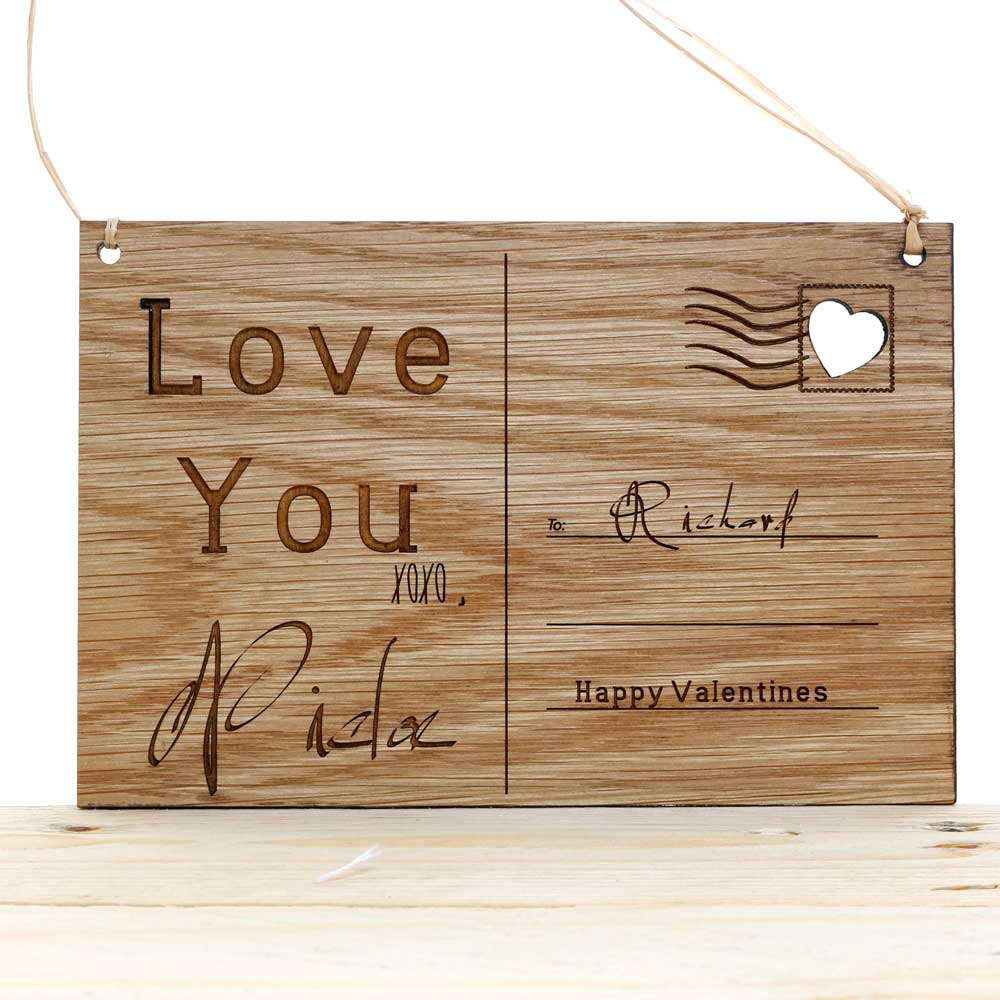 Love
You
XOXO,
To: Richard
Happy Valentines